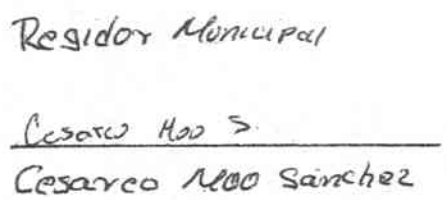 Regidor Municipal
Cesareo Moo S.
Cesareo Moo Sánchez